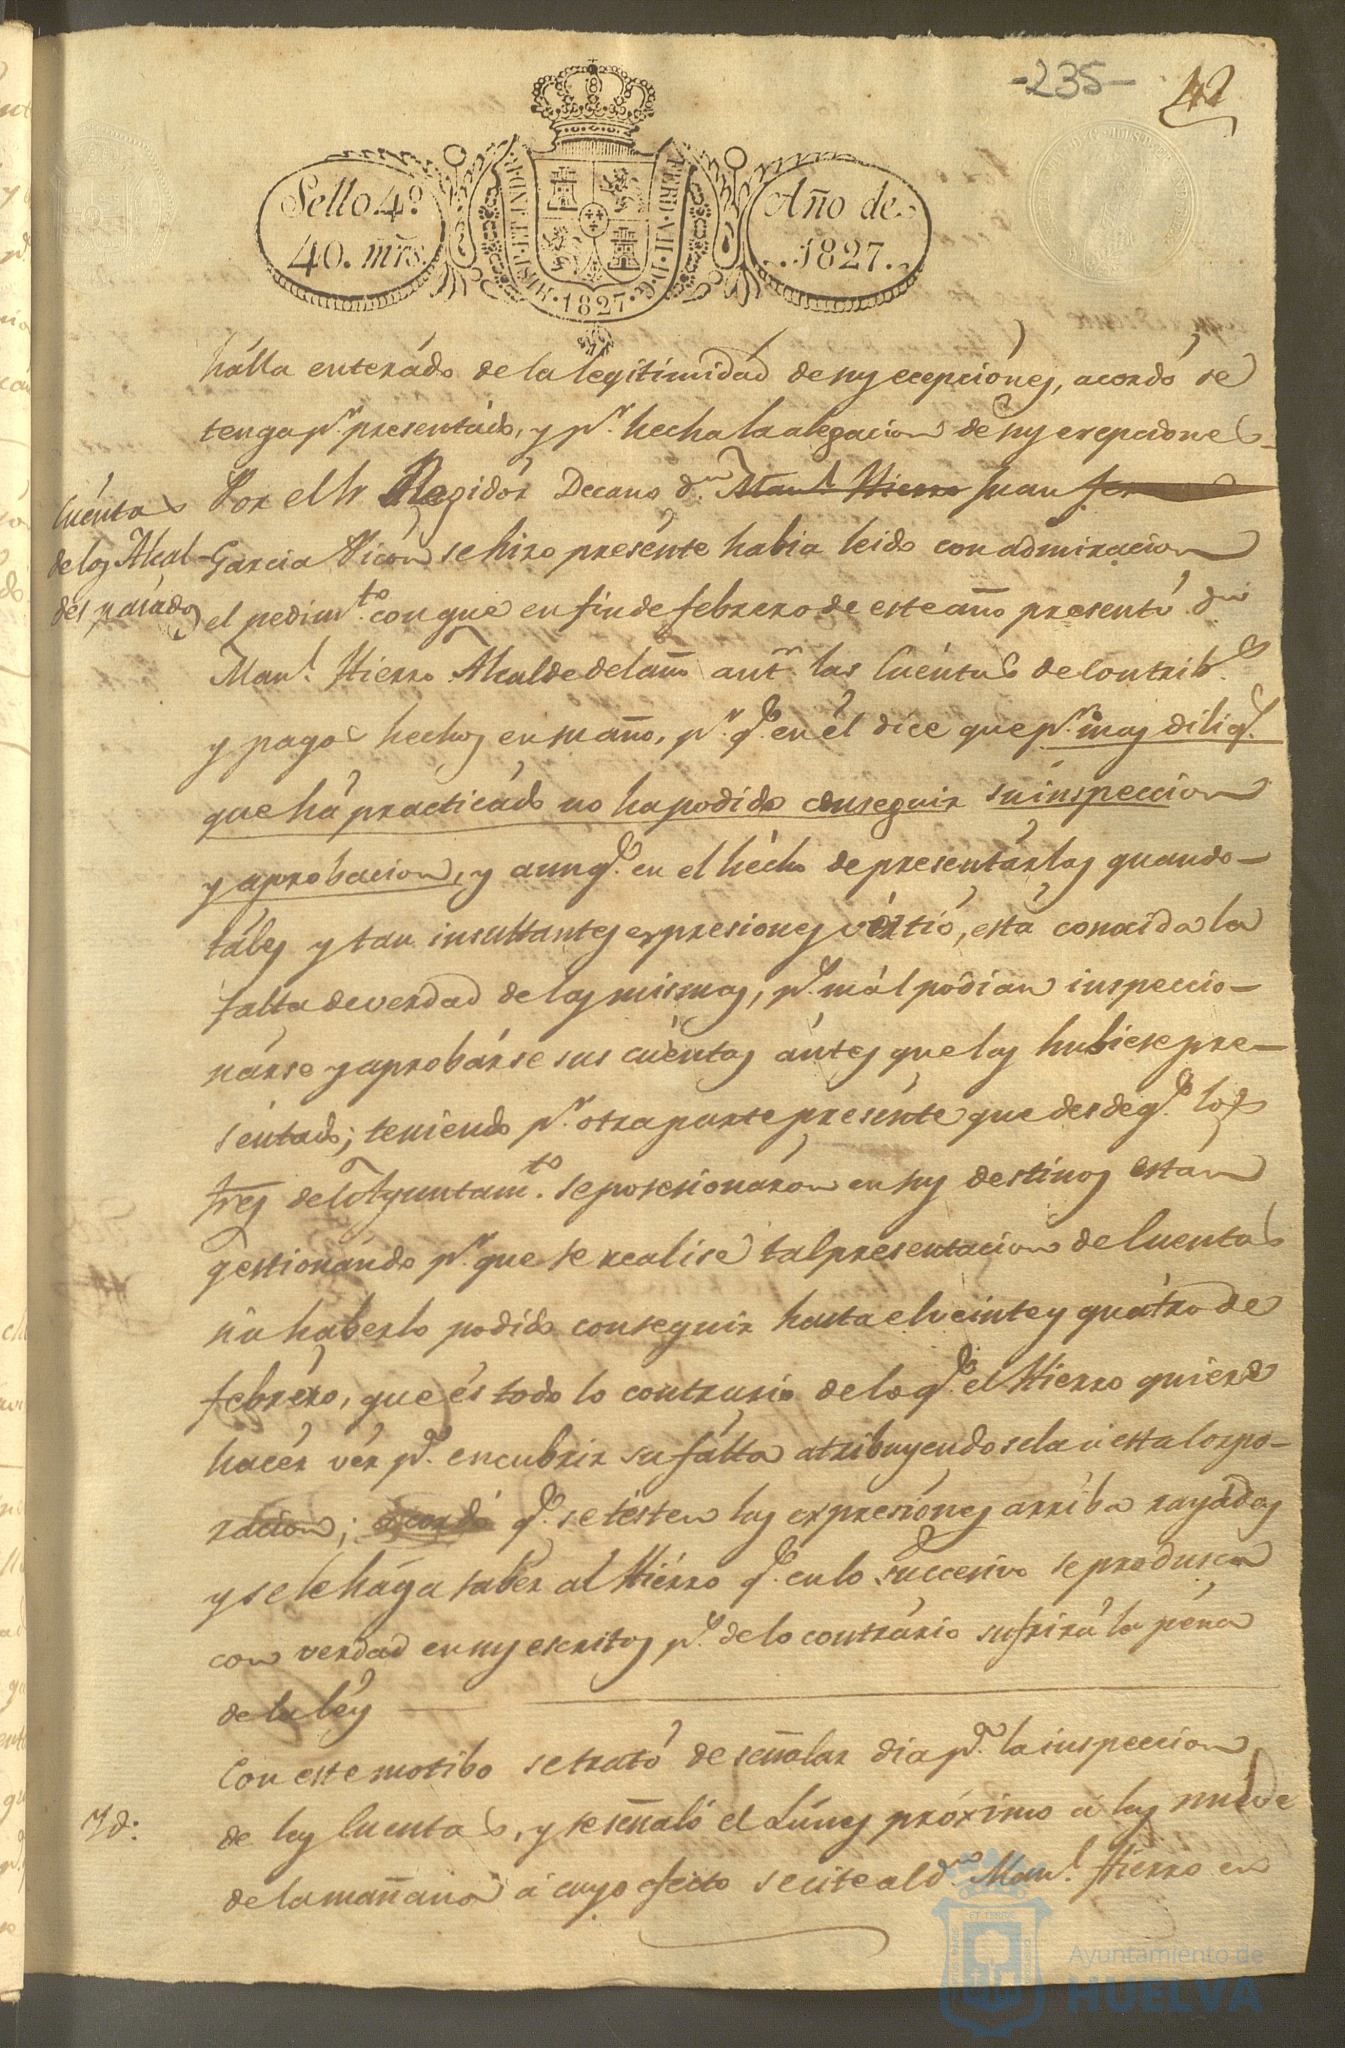 -235-
42
Sello 4º
40. mrs.
HISP. ET IND. R.
FERD. VII. D. G.
1827
Año de
1827.
hálla enterádo de la legitimidád de sus ecepciónes, acordó se
tenga pr. presentádo, y pr. hecha la alegacion de sus excepciones
Cuéntas
de los Alcal-
des pasádos
Por el Sr Regidór Decano dn. Manl. Hierro Juan
García Vicón se hizo presénte había leido con admiracion
el pedimto. con que en fin de febrero de este año presentó dn.
Manl. Hierro Alcalde del año antr. las Cuéntas de Contribs.
y pagos hechos en su año, pr. qe. en él dice que pr. mas diligs.
que há practicádo no ha podido conseguir su inspeccion
y aprobacion, y aunqe. en el hécho de presentárlas quando
táles y tan insultantes expresiones virtió, está conocida la
falta de verdad de las mismas, ps. mál podian inspeccio-
nárse y aprobárse sus cuéntas ántes que las hubiese pre-
séntado; teniendo pr. otra parte presénte que desde qe. los
Sres de este Ayuntamto. se posesionáron en sus destinos están
gestionándo pr. que se realise tal presentacion de Cuentas
sin haberlo podido conseguir hasta el veinte y quátro de
febréro, que és todo lo contrario de lo qe. el Hierro quiere
hacér vér pa. encubrir su fálta atribuyendosela á esta Corpo-
racion; acordó qe. se tésten las expresiónes arriba rayádas
y se le hága saber al Hiérro qe. en lo succesivo se produsca
con verdad en sus escritos, ps. de lo contrário sufrirá la péna
de la léy
Yd.
Con este motibo se trató de señalar dia pa. la inspeccion
de las Cuentas, y se señaló el Lúnes próximo á las nuéve
de la mañana á cuyo efecto se cite al dn. Manl. Hierro en
Ayuntamiento de
HUELVA